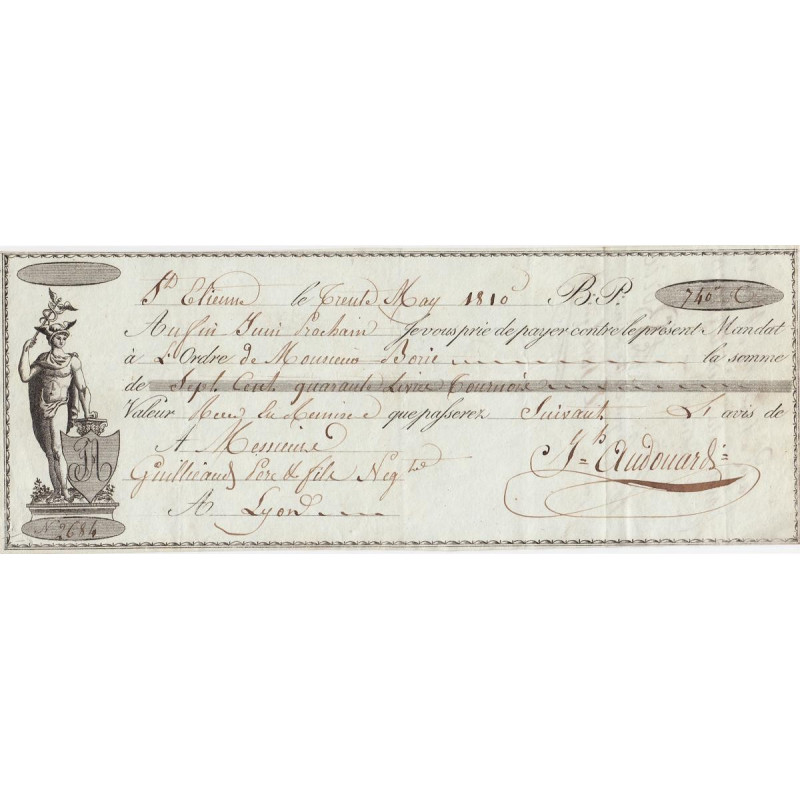 St Etienne le trente May 1810 B. P. 740" C
Au fin Juin Prochain Je vous prie de payer contre le présent Mandat
à L'Ordre de Monsieur Borie la somme
de Sept Cent quarante Livres Tournois
Valeur Recu La Remise que passerez Suivant L'avis de
A Messieurs Jh Audouard
Guillieaud Pere & fils Negts
A Lyon
JA
No 2684